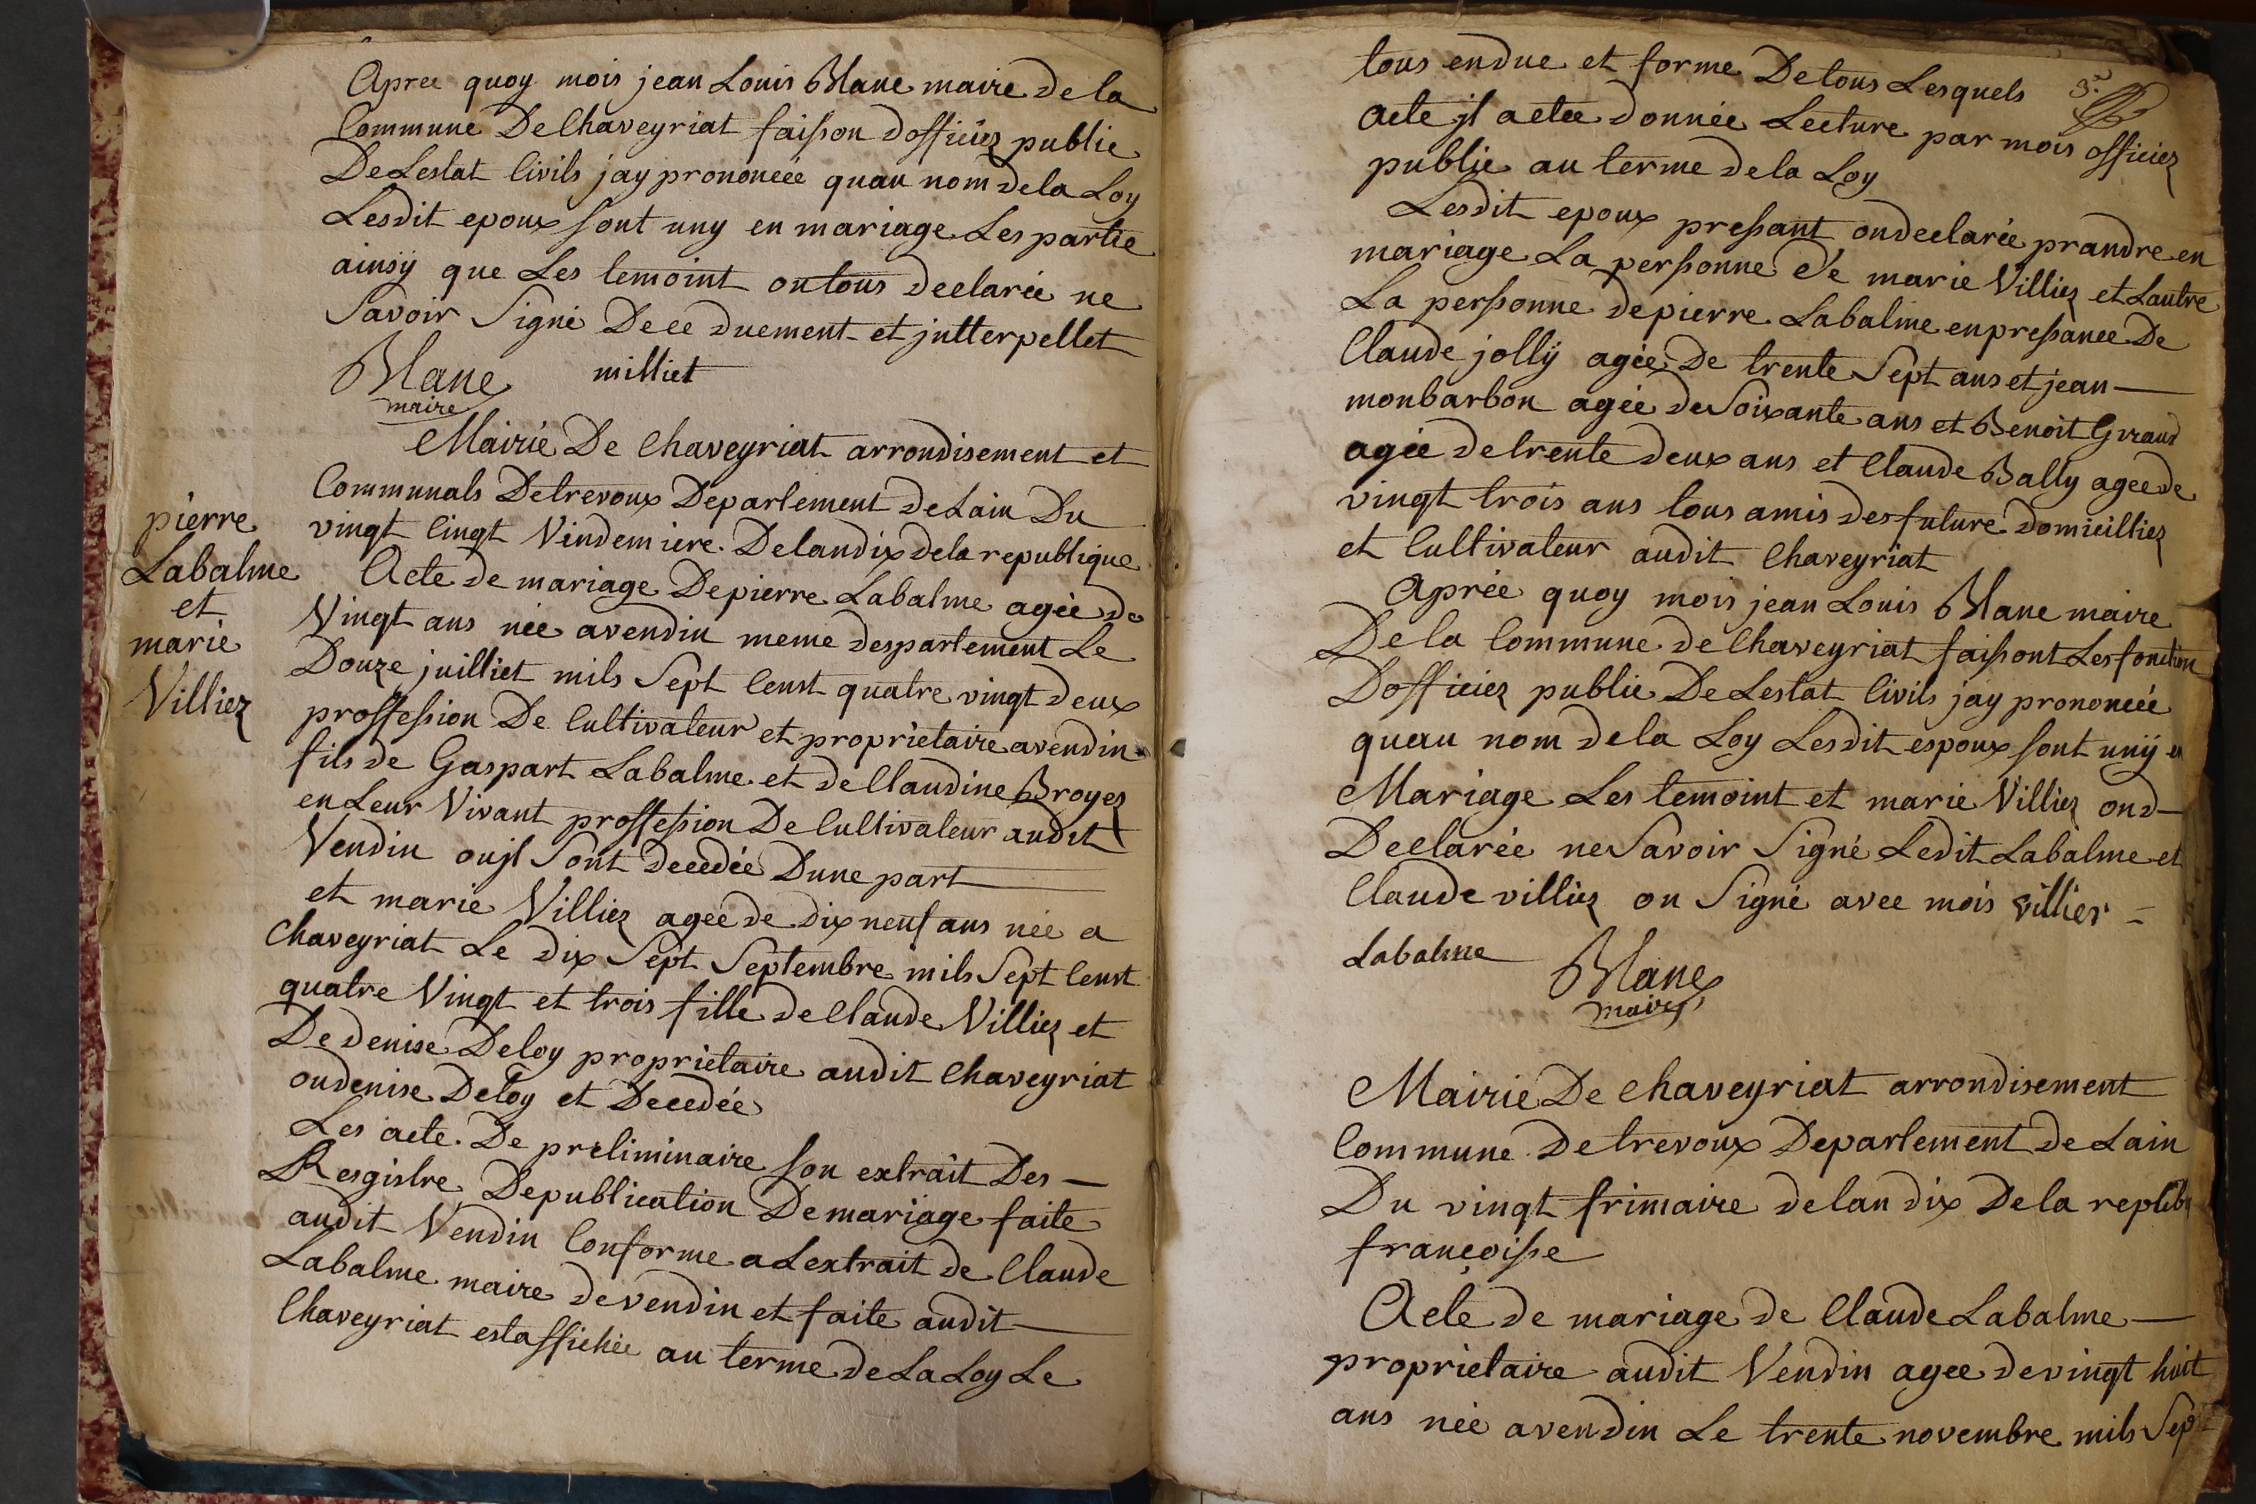 Apree quoy mois jean Louis Blanc maire de la
Commune De Chaveyriat faisson dofficiez public
De Lestat Civils jay prononceé quau nom de la Loy
Lesdit epoux sont uny en mariage Les partie
ainsy que Les temoint on tous declarée ne
Savoir Signé De ce duement et jntterpellet
Blanc milliet
maire
Mairie De Chaveyriat arrondisement et
Communals De trevoux Departement de Lain Du
vingt Cinqt Vindemiere De lan dix de la republique
pierre
Labalme
et
marie
Villiez
Acte de mariage De pierre Labalme agée de
Vingt ans née a vendin meme despartement Le
Douze juilliet mils Sept Censt quatre vingt deux
proffession De Cultivateur et proprietaire a vendin
fils de Gaspart Labalme et de Claudine Broyez
en Leur Vivant proffession De Cultivateur audit
Vendin oujl Sont decedée Dune part
et marie Villiez ageé de dix neuf ans née a
Chaveyriat Le dix Sept Septembre mils Sept Censt
quatre Vingt et trois fille de Claude Villiez et
De denise Deloy proprietaire audit Chaveyriat
ou denise Deloy et Decedée
Les acte De preliminaire son extrait Des
Resgistre De publication De mariage faite
audit Vendin Conforme a Lextrait de Claude
Labalme maire de vendin et faite audit
Chaveyriat est affichée au terme de La Loy Le
3.e
tous en due et forme De tous Lesquels
acte jl a etee donnée Lecture par mois officiez
public au terme de la Loy
Lesdit epoux pressant on declarée prandre en
mariage La perssonne de marie Villiez et Lautre
La perssonne de pierre Labalme en pressance De
Claude jolly agée De trente Sept ans et jean
monbarbon agée de Soixante ans et Benoit Giraud
agée de trente deux ans et Claude Bally agee de
vingt trois ans tous amis des future domicilliez
et Cultivateur audit Chaveyriat
Aprée quoy mois jean Louis Blanc maire
De la Commune de Chaveyriat faissont Les fonction
Dofficiez public De Lestat Civils jay prononceé
quau nom de la Loy Lesdit espoux sont uny en
Mariage Les temoint et marie Villiez ond
Declarée ne Savoir Signé Ledit Labalme et
Claude villiez on Signé avec mois villier
Labalme Blanc
maire
Mairie De Chaveyriat arrondisement
Commune De trevoux Departement de Lain
Du vingt frimaire de lan dix De la
françoisse
Acte de mariage de Claude Labalme
proprietaire audit Vendin agee de vingt huit
ans née a vendin Le trente novembre mils Sept